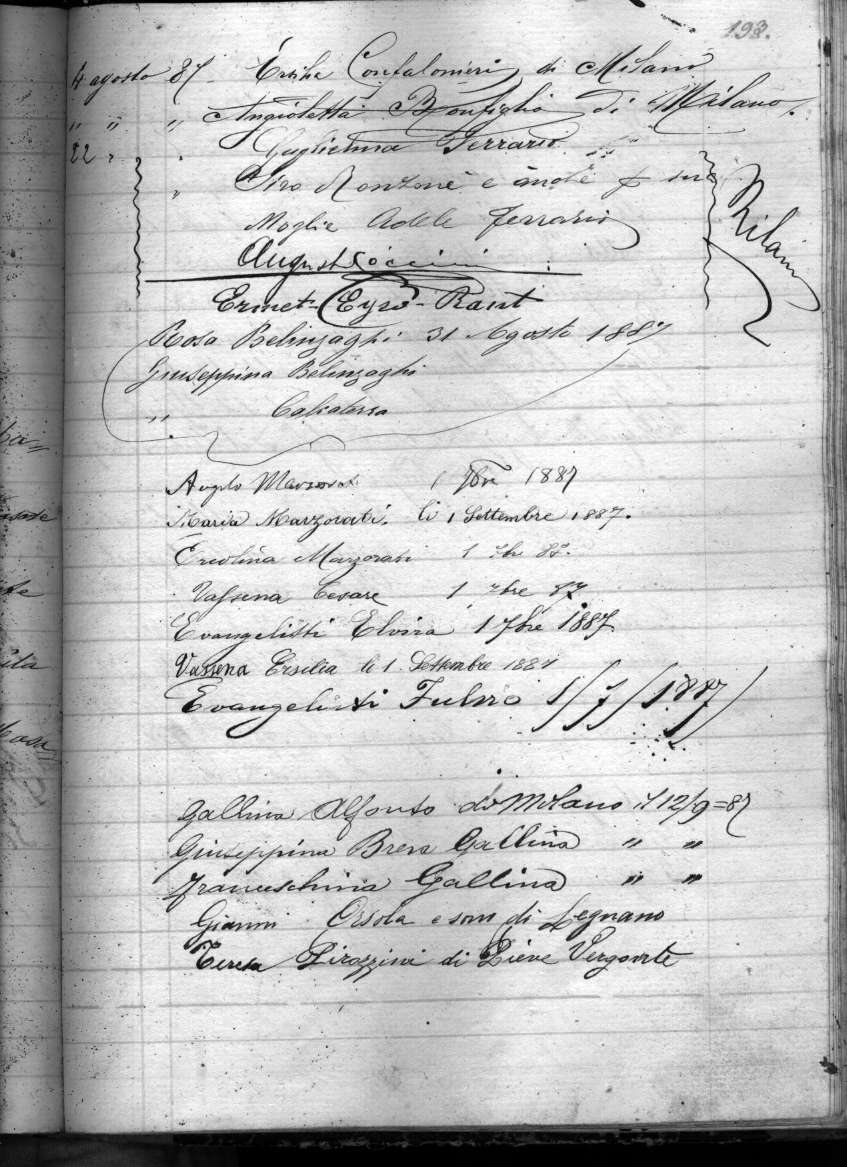 193.
4 agosto 87 Ersilia Confalonieri di Milano
" " " Angioletta Bonfiglio di Milano
22 " " Guglielmina Ferrario
" Siro Ronzone e anche p sua
Moglie Adele Ferrario
Milano
August
Ermet - Eyso - Rant
Rosa Belinzaghi 31 Agosto 1887
Giuseppina Belinzaghi
" Calcaterra
Angelo Marzorati 1 7bre 1887
Maria Marzorati. li 1 Settembre 1887.
Ercolina Marzorati 1 7br 87.
Vassena Cesare 1 7bre 87
Evangelisti Elvira 1 7bre 1887
Vassena Ersilia li 1. Settembre 1887
Evangelisti Fulvio 1/7/1887
Gallina Alfonso di Milano il 12/9=87
Giuseppina Brera Gallina " "
Franceschina Gallina " "
Gianni Orsola e som di Legnano
Teresa Pirazzini di Pieve Vergonte